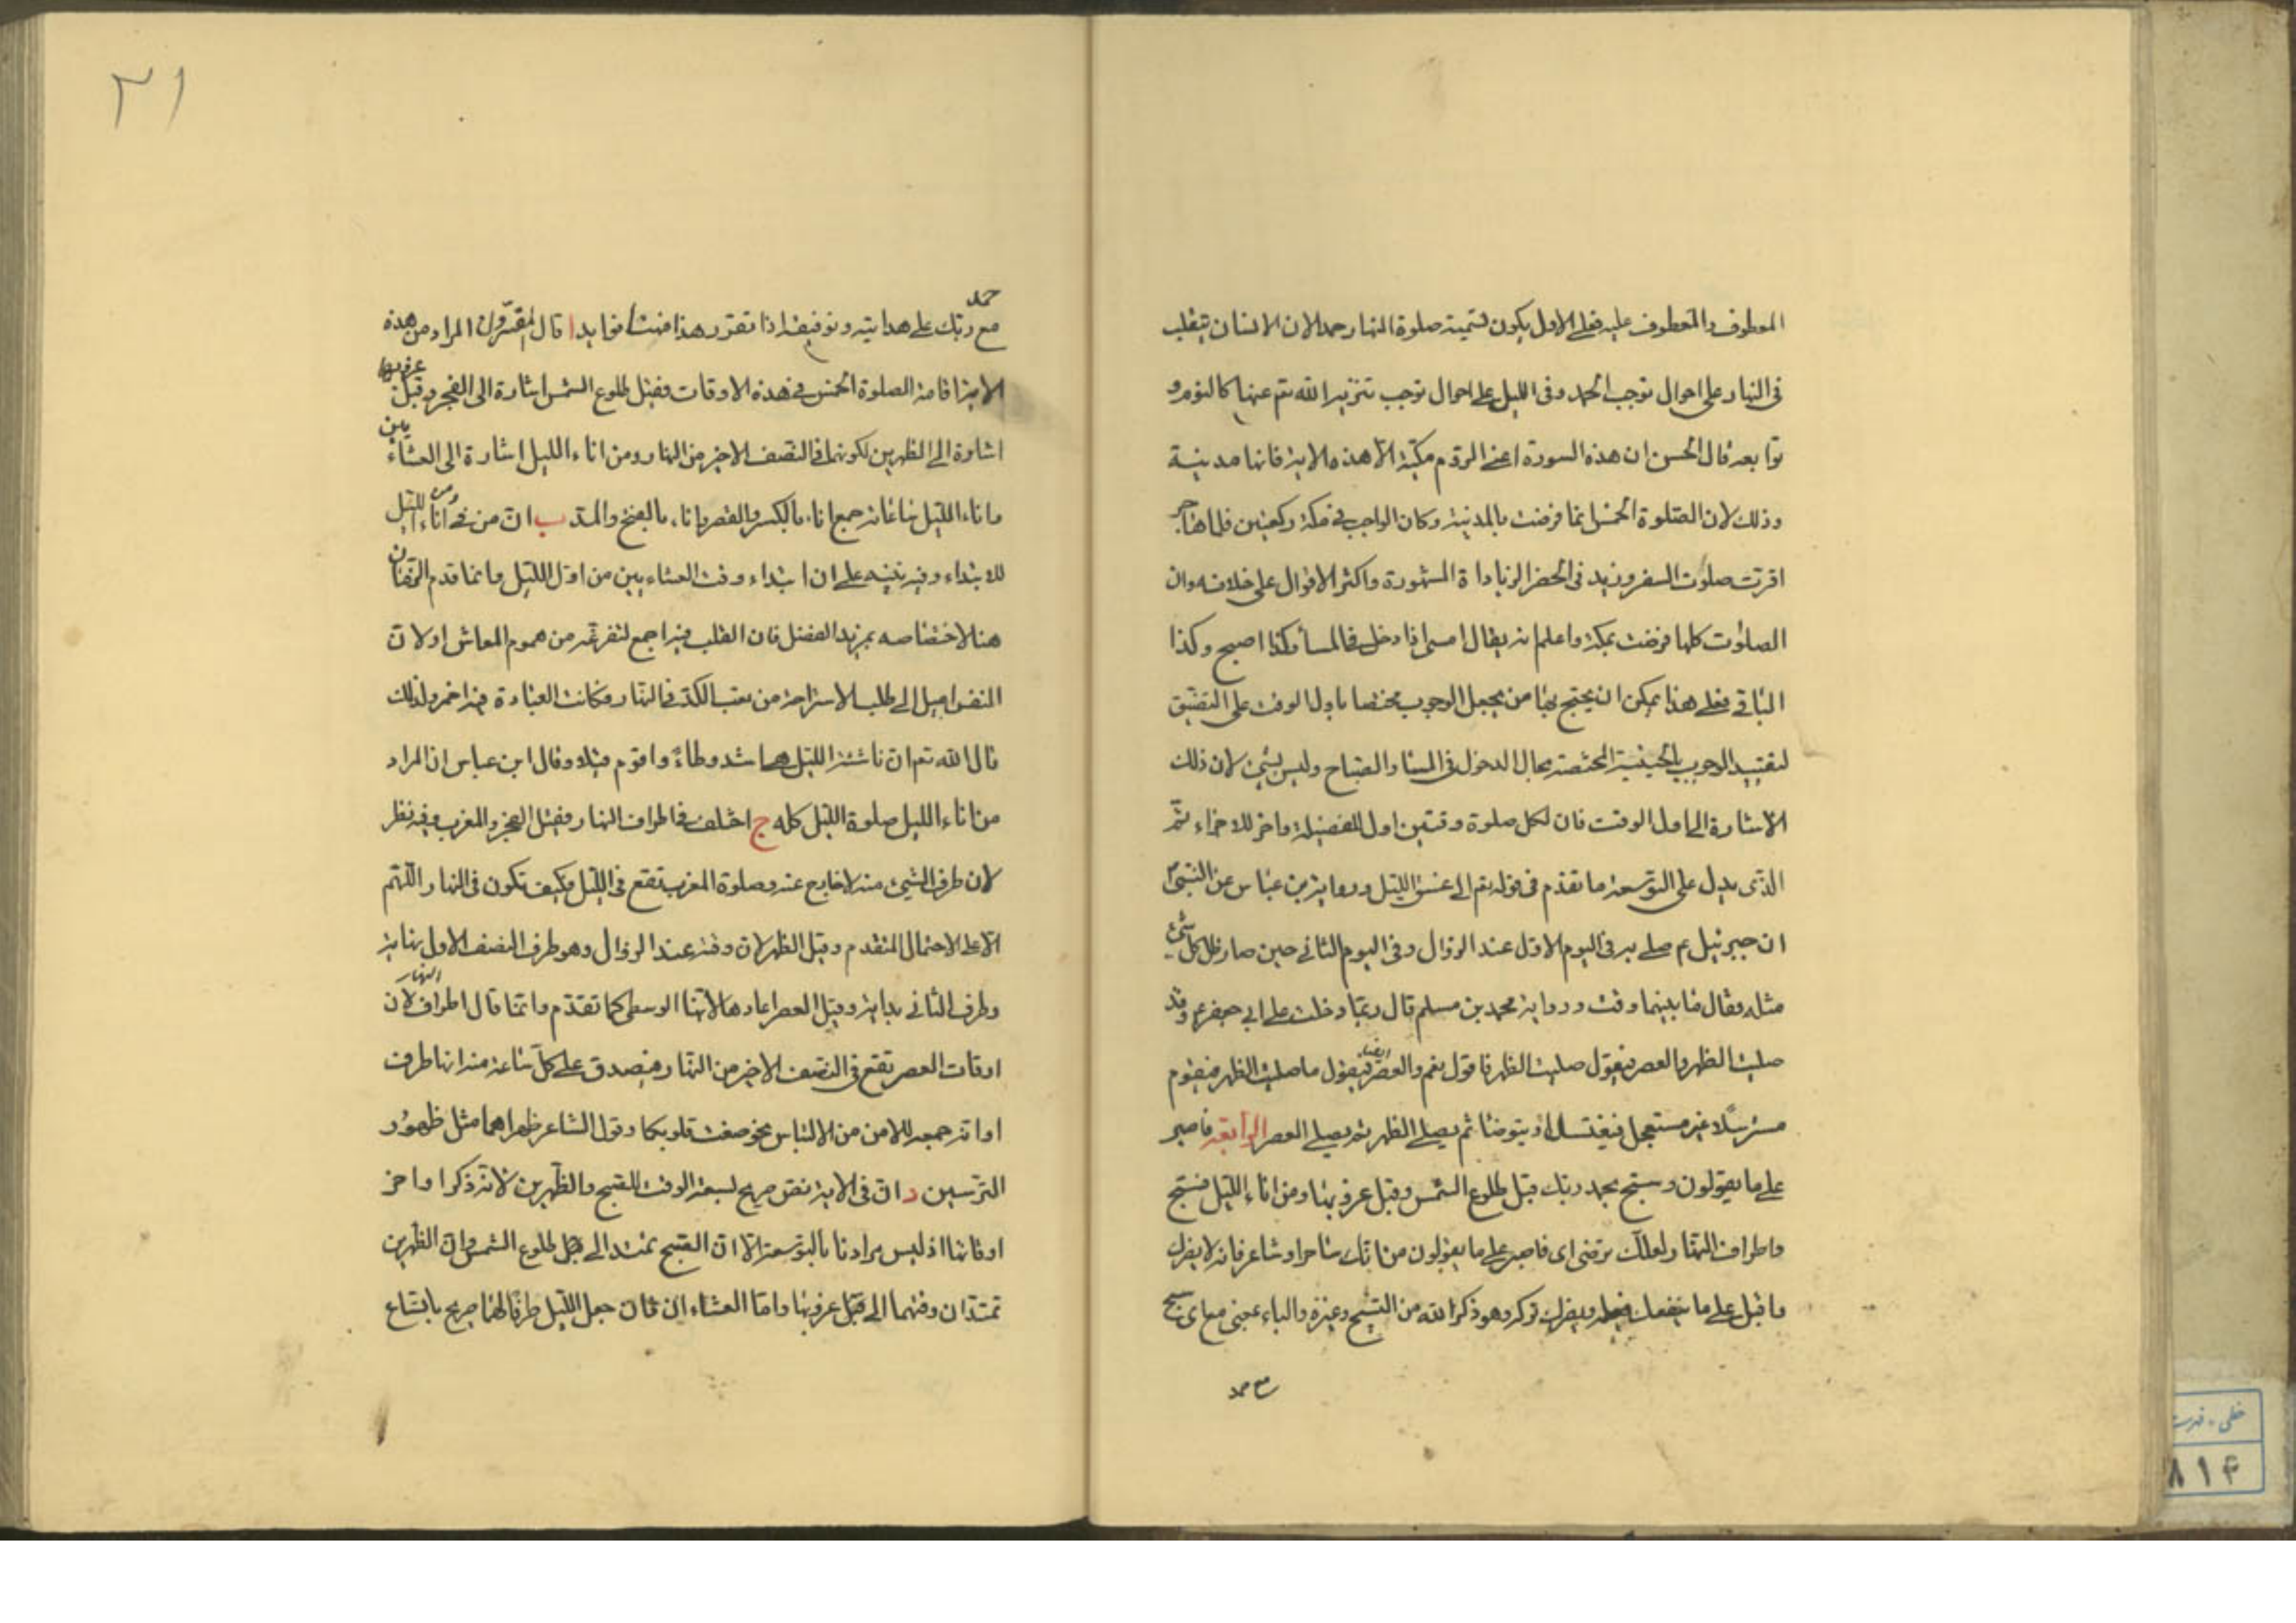 المعطوف والمعطوف عليه فعلى الاول يكون تسمية صلوة النهار حمدا لان الانسان يتقلب
فى النهار على احوال توجب الحمد وفى الليل على احوال توجب تنزيه الله تع عنها كالنوم و
توابعه قال الحسن ان هذه السورة اعنى الروم مكية الا هذه الاية فانها مدنية
وذلك لان الصلوة الخمس انما فرضت بالمدينة وكان الواجب فى مكة ركعتين فلما هاجر
اقرت صلوت السفر وزيد فى الحضر الزيادة المشهورة واكثر الاقوال على خلافه وان
الصلوت كلها فرضت بمكة واعلم انه يقال امسى اذا دخل فى المسا وكذا اصبح وكذا
الباقى فعلى هذا يمكن ان يحتج بها من يجعل الوجوب مختصا باول الوقت على التضيق
لتقييد الوجوب بالحينية المختصة بحال الدخول فى المسا والصباح وليس بشئ لان ذلك
الاشارة الى اول الوقت فان لكل صلوة وقتين اول للفضيلة واخر للاجزاء ثم
الذى يدل على التوسعة ما تقدم فى قوله تع الى غسق الليل ورواية بن عباس عن النبى ص
ان جبرئيل ع صلى به فى اليوم الاول عند الزوال وفى اليوم الثانى حين صار ظل كل شئ
مثله وقال ما بينهما وقت ورواية محمد بن مسلم قال ربما دخلت على ابى جعفر ع وقد
صليت الظهر والعصر فيقول صليت الظهر فاقول نعم والعصر فيقول ما صليت الظهر فيقوم
مسترسلا غير مستعجل فيغتسل او يتوضا ثم يصلى الظهر ثم يصلى العصر الرابعة فاصبر
على ما يقولون وسبح بحمد ربك قبل طلوع الشمس وقبل غروبها ومن اناء الليل فسبح
واطراف النهار لعلك ترضى اى فاصبر على ما يقولون من انك ساحر او شاعر فانه لا يضرك
واقبل على ما ينفعك ويضرك تركه وهو ذكر الله من التسبيح وغيره والباء بمعنى مع اى سبح
مع حمد
٣١
حمد
مع ربك على هدايته وتوفيقه اذا تقرر هذا فهنا فوايد ا قال المفسرون المراد من هذه
الاية اقامة الصلوة الخمس فى هذه الاوقات فقبل طلوع الشمس اشارة الى الفجر وقبل غروبها
اشارة الى الظهرين لكونهما فى النصف الاخير من النهار ومن اناء الليل اشارة الى العشائين
واناء الليل ساعاته جمع انا بالكسر والقصر وانا بالفتح والمد ب ان من فى ومن اناء الليل
للابتداء وفيه تنبيه على ان ابتداء وقت العشاءين من اول الليل وانما قدم الزمان
هنا لاختصاصه بمزيد الفضل فان القلب فيه اجمع لتفرغه من هموم المعاش او لان
النفس اميل الى طلب الاستراحة من تعب الكد فى النهار فكانت العبادة فيه احمز ولذلك
قال الله تع ان ناشئة الليل هى اشد وطاءً واقوم قيلا وقال ابن عباس ان المراد
من اناء الليل صلوة الليل كله ج اختلف فى اطراف النهار فقيل الفجر والمغرب وفيه نظر
لان طرف الشئ منه لا خارج عنه وصلوة المغرب تقع فى الليل فكيف تكون فى النهار اللهم
الا على الاحتمال المتقدم وقيل الظهر لان وقته عند الزوال وهو طرف النصف الاول نهاية
وطرف الثانى بداية وقيل العصر اعادها لانها الوسطى كما تقدم وانما قال اطراف النهار لان
اوقات العصر تقع فى النصف الاخير من النهار فيصدق على كل ساعة منه انها طرف
او انه جمعه للامن من الالتباس نحو صغت قلوبكما وقول الشاعر ظهراهما مثل ظهور
الترسين د ان فى الاية نص صريح لسعة الوقت للصبح والظهرين لانه ذكر اواخر
اوقاتها اذ ليس مرادنا بالتوسعة الا ان الصبح يمتد الى قبل طلوع الشمس وان الظهرين
تمتدان وقتهما الى قبل غروبها واما العشاءان فان جعل الليل ظرفا لهما صريح باتساع
خطى - فهرست
٨١۴